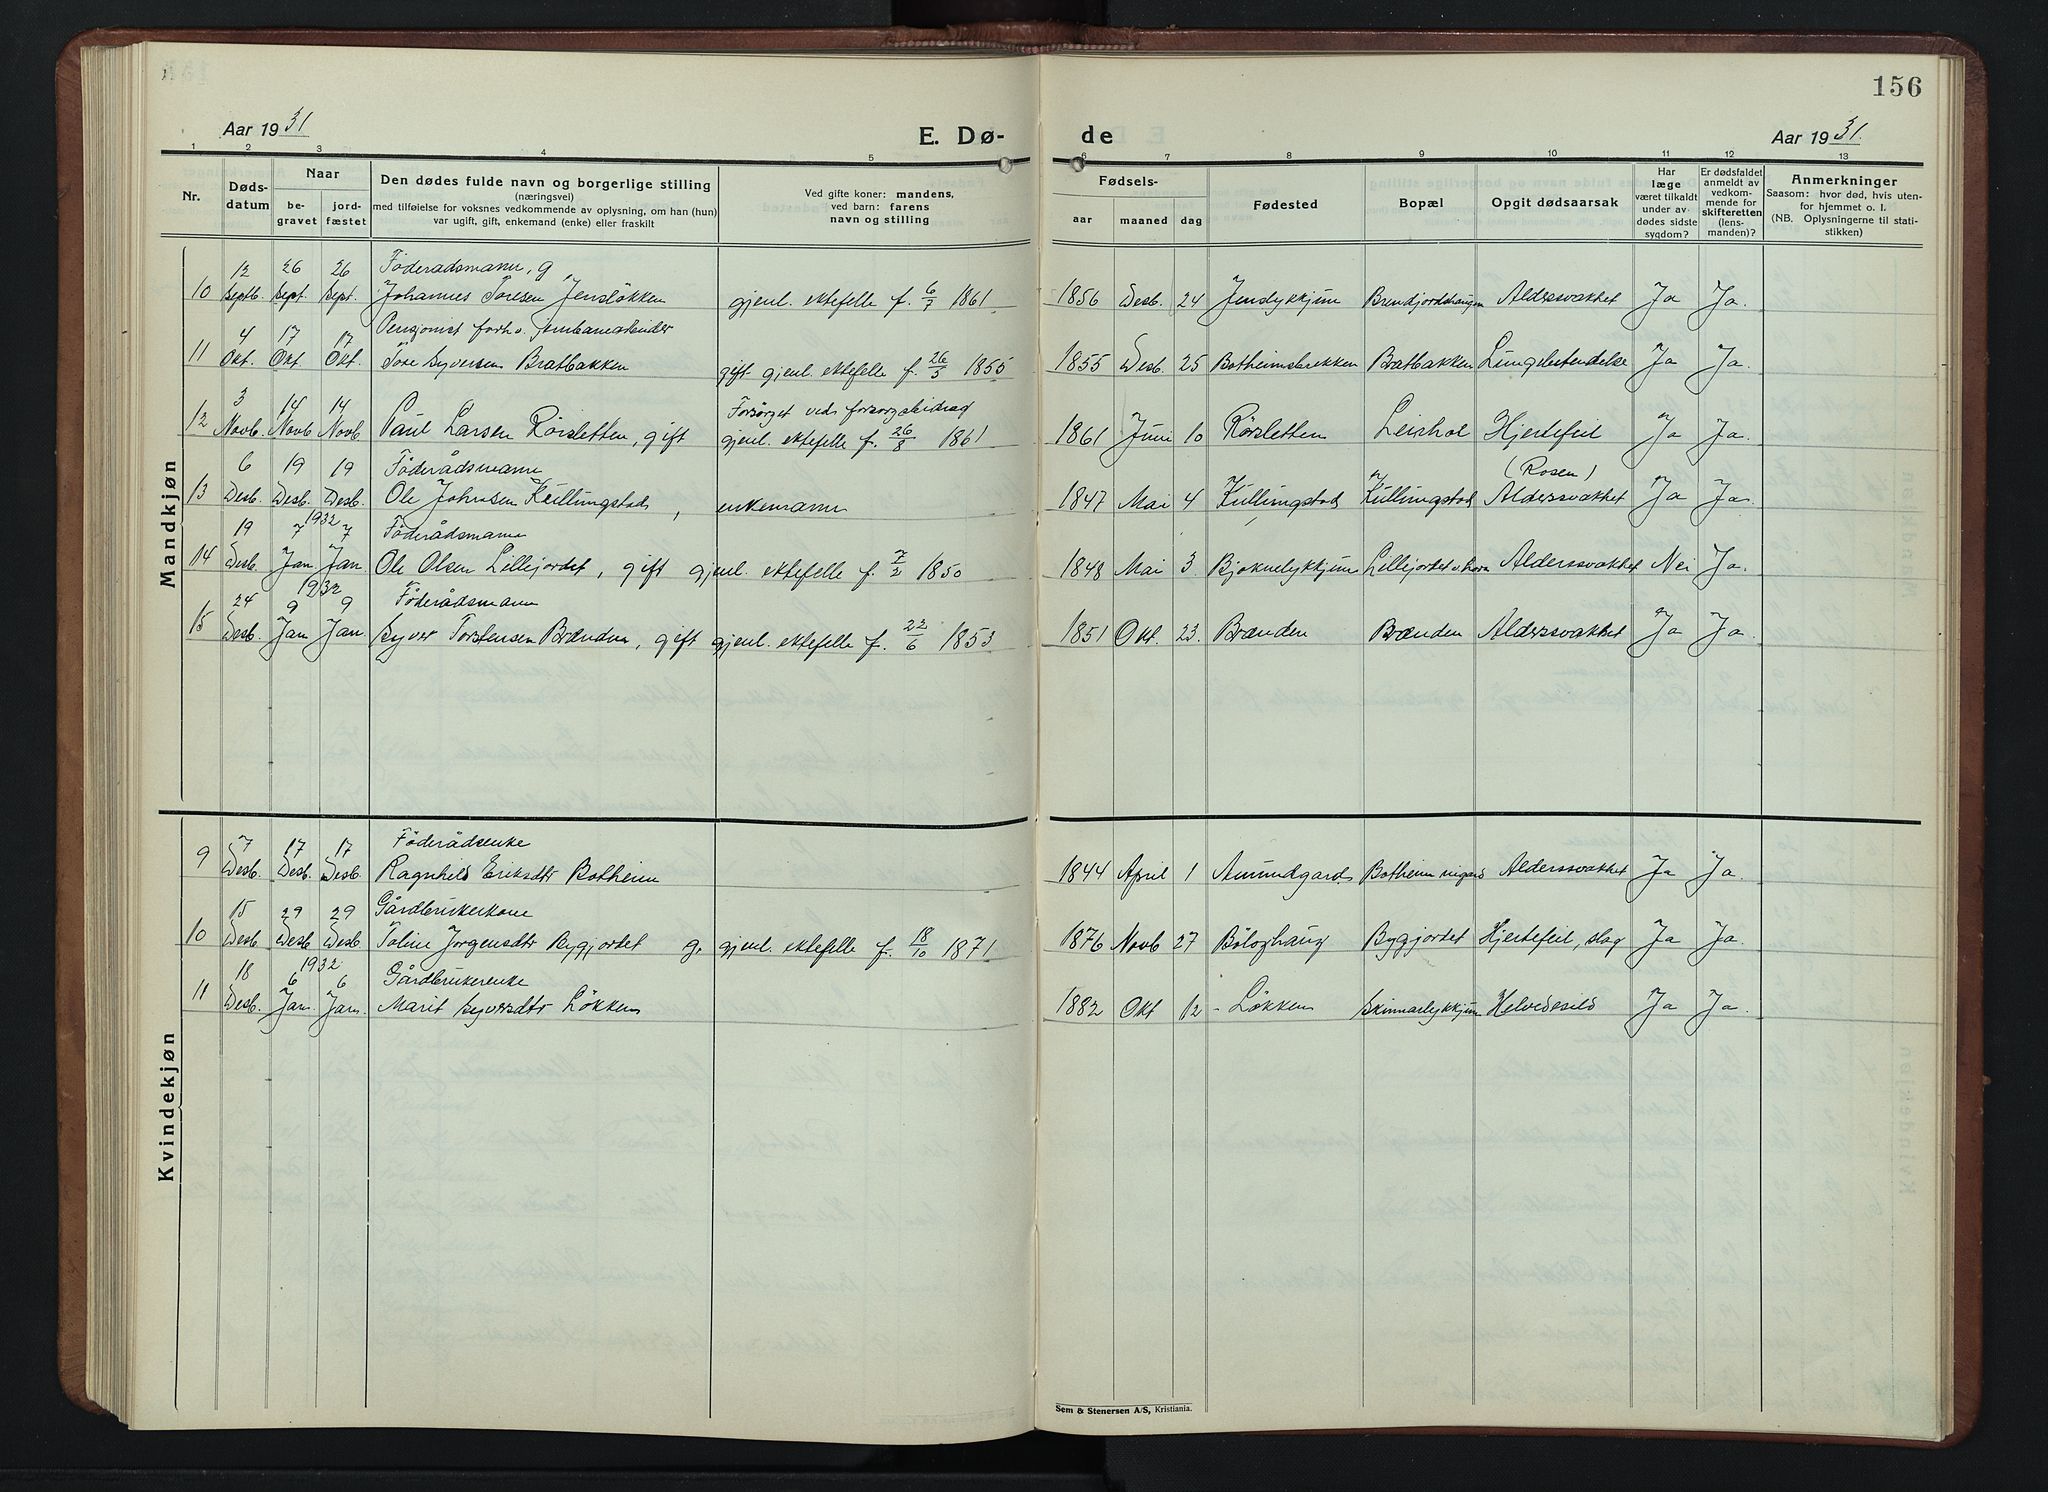 156
Aar 1931
E. Dø-
de
Aar 1931.
1 2 3 4 5 6 7 8 9 10 11 12 13
Nr.
Døds-
datum
Naar
be-
gravet
jord-
fæstet
Den dødes fulde navn og borgerlige stilling
(næringsvei)
med tilføielse for voksnes vedkommende av oplysning, om han (hun)
var ugift, gift, enkemand (enke) eller fraskilt
Ved gifte koner: mandens,
ved barn: farens
navn og stilling
Fødsels-
aar maaned dag
Fødested
Bopæl
Opgit dødsaarsak
Har
læge
været tilkaldt
under av-
dødes sidste
sygdom?
Er dødsfaldet
anmeldt av
vedkom-
mende for
skifteretten
(lens-
manden)?
Anmerkninger
Saasom: hvor død, hvis uten-
for hjemmet o. l.
(NB. Oplysningerne til stati-
stikken)
Mandkjøn
12 26 26 Föderådsmann, g
10 Septb. Sept. Sept. Johannes Toresen Jensløkken gjenl. ektefelle f. 6/7 1861 1856 Desb. 24 Jenslykkjun Brendjordshaugen Alderssvakhet Ja Ja.
4 17 17 Pensjonist forhv. jernbanearbeider
11 Okt. Okt. Okt. Tore Syversen Bratbakken gift gjenl. ektefelle f. 26/5 1855 1855 Desb. 25 Botheimsbrekken Bratbakken Lungebetendelse Ja Ja.
3 14 14 Forsörget ved forsorgsbidrag
12 Novb. Novb Novb Paul Larsen Rörsletten, gift gjenl. ektefelle f. 26/8 1861 1861 Juni 10 Rörsletten Leirhol Hjertefeil Ja Ja.
6 19 19 Föderådsmann (Rosen)
13 Desb. Desb. Desb. Ole Johnsen Kvillingstad, enkemann 1847 Mai 4 Kvillingstad Kvillingstad Alderssvakhet Ja Ja.
19 1932 7 7 Föderådsmann
14 Desb. Jan Jan. Ole Olsen Lillejordet, gift gjenl. ektefelle f. 7/2 1850 1848 Mai 3. Lillejordet Alderssvakhet Nei Ja.
24 1932 9 9 Föderådsmann
15 Desb. Jan Jan. Syver Torstensen Brænden, gift gjenl. ektefelle f. 22/6 1853 1851 Okt. 23. Brænden Brænden Alderssvakhet Ja Ja.
Kvindekjøn
7 17 17 Föderådsenke
9 Desb. Desb. Desb. Ragnhild Eriksdtr Botheim 1844 April 1 Amundgard Botheim nigard Alderssvakhet Ja Ja.
15 29 29 Gårdbrukerkone
10 Desb Desb Desb. Toline Jørgensdtr Bygjordet g. gjenl. ektefelle f. 18/10 1871 1876 Novb 27 Böloghaug Bygjordet Hjertefeil, slag Ja Ja.
18 1932 6 6 Gårdbrukerenke
11 Desb. Jan. Jan. Marit Syversdtr Løkken 1882 Okt 12 - Løkken Skinnarlykkjun Helvedesild Ja Ja.
Sem & Stenersen A/S, Kristiania.